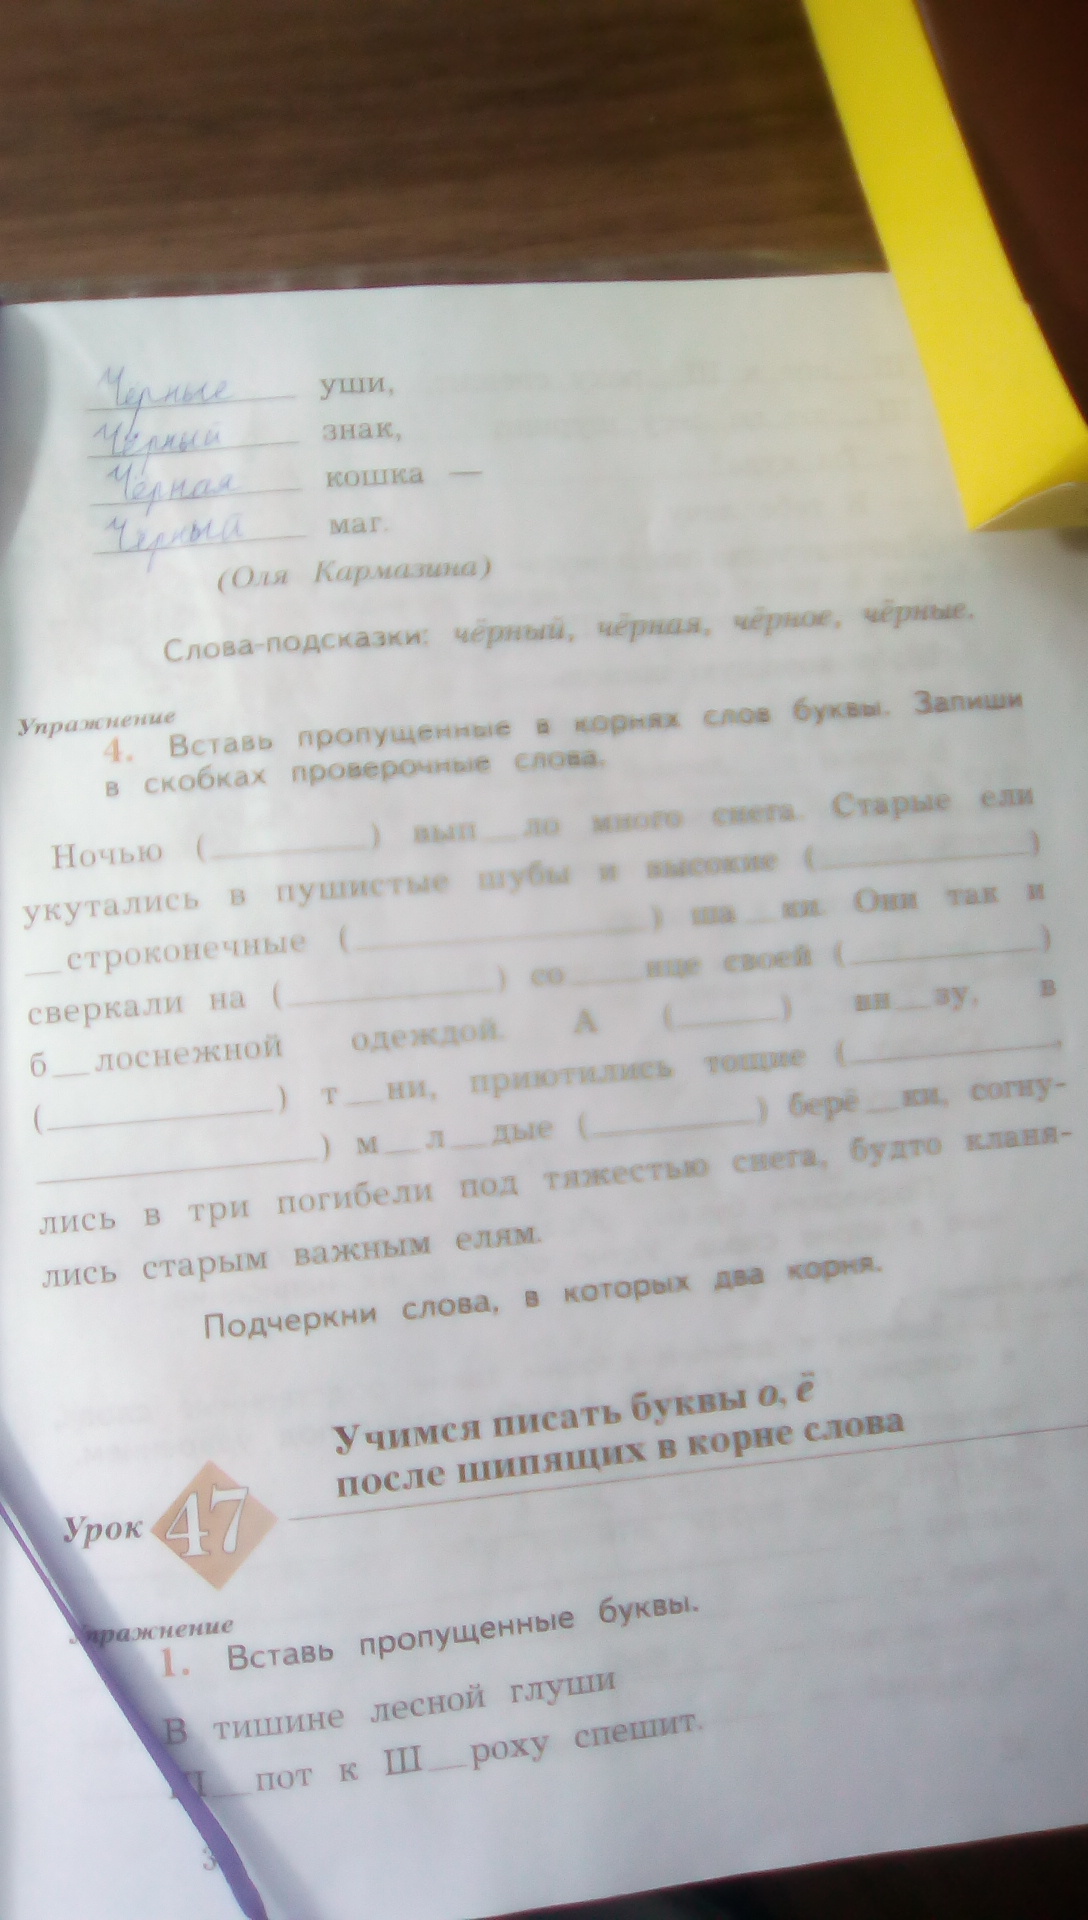 Чёрные уши,
Чёрный знак,
Чёрная кошка —
Чёрный маг.
(Оля Кармазина)
Слова-подсказки: чёрный, чёрная, чёрное, чёрные.
Упражнение
4. Вставь пропущенные в корнях слов буквы. Запиши
в скобках проверочные слова.
Ночью (__________) вып__ло много снега. Старые ели
укутались в пушистые шубы и высокие (__________)
__строконечные (__________) ша__ки. Они так и
сверкали на (__________) со__нце своей (__________)
б__лоснежной одеждой. А (______) вн__зу, в
(__________) т__ни, приютились тощие (__________,
__________) м__л__дые (__________) берё__ки, согну-
лись в три погибели под тяжестью снега, будто кланя-
лись старым важным елям.
Подчеркни слова, в которых два корня.
Учимся писать буквы о, ё
после шипящих в корне слова
Урок 47
Упражнение
1. Вставь пропущенные буквы.
В тишине лесной глуши
Ш__пот к Ш__роху спешит.
3